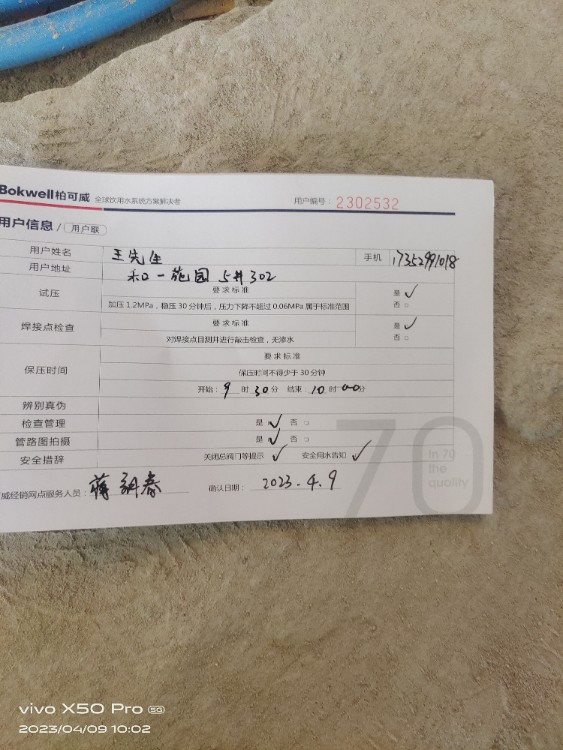 Bokwell柏可威 全球饮用水系统方案解决者 用户编号：2302532
用户信息/ 用户联
用户姓名 王先生 手机 17352991018
用户地址 和一苑园 5#302
试压 要求标准 是 ✓
加压1.2MPa，稳压30分钟后，压力下降不超过0.06MPa属于标准范围 否 □
焊接点检查 要求标准 是 ✓
对焊接点目测并进行敲击检查，无渗水 否 □
保压时间 要求标准
保压时间不得少于30分钟
开始：9时30分 结束：10时00分
辨别真伪
检查管理 是 ✓ 否 □
管路图拍摄 是 ✓ 否 □
安全措辞 关闭总阀门等提示 ✓ 安全用水告知 ✓
威经销网点服务人员：蒋 春 确认日期：2023.4.9
70
in 70
the
quality
vivo X50 Pro 5G
2023/04/09 10:02